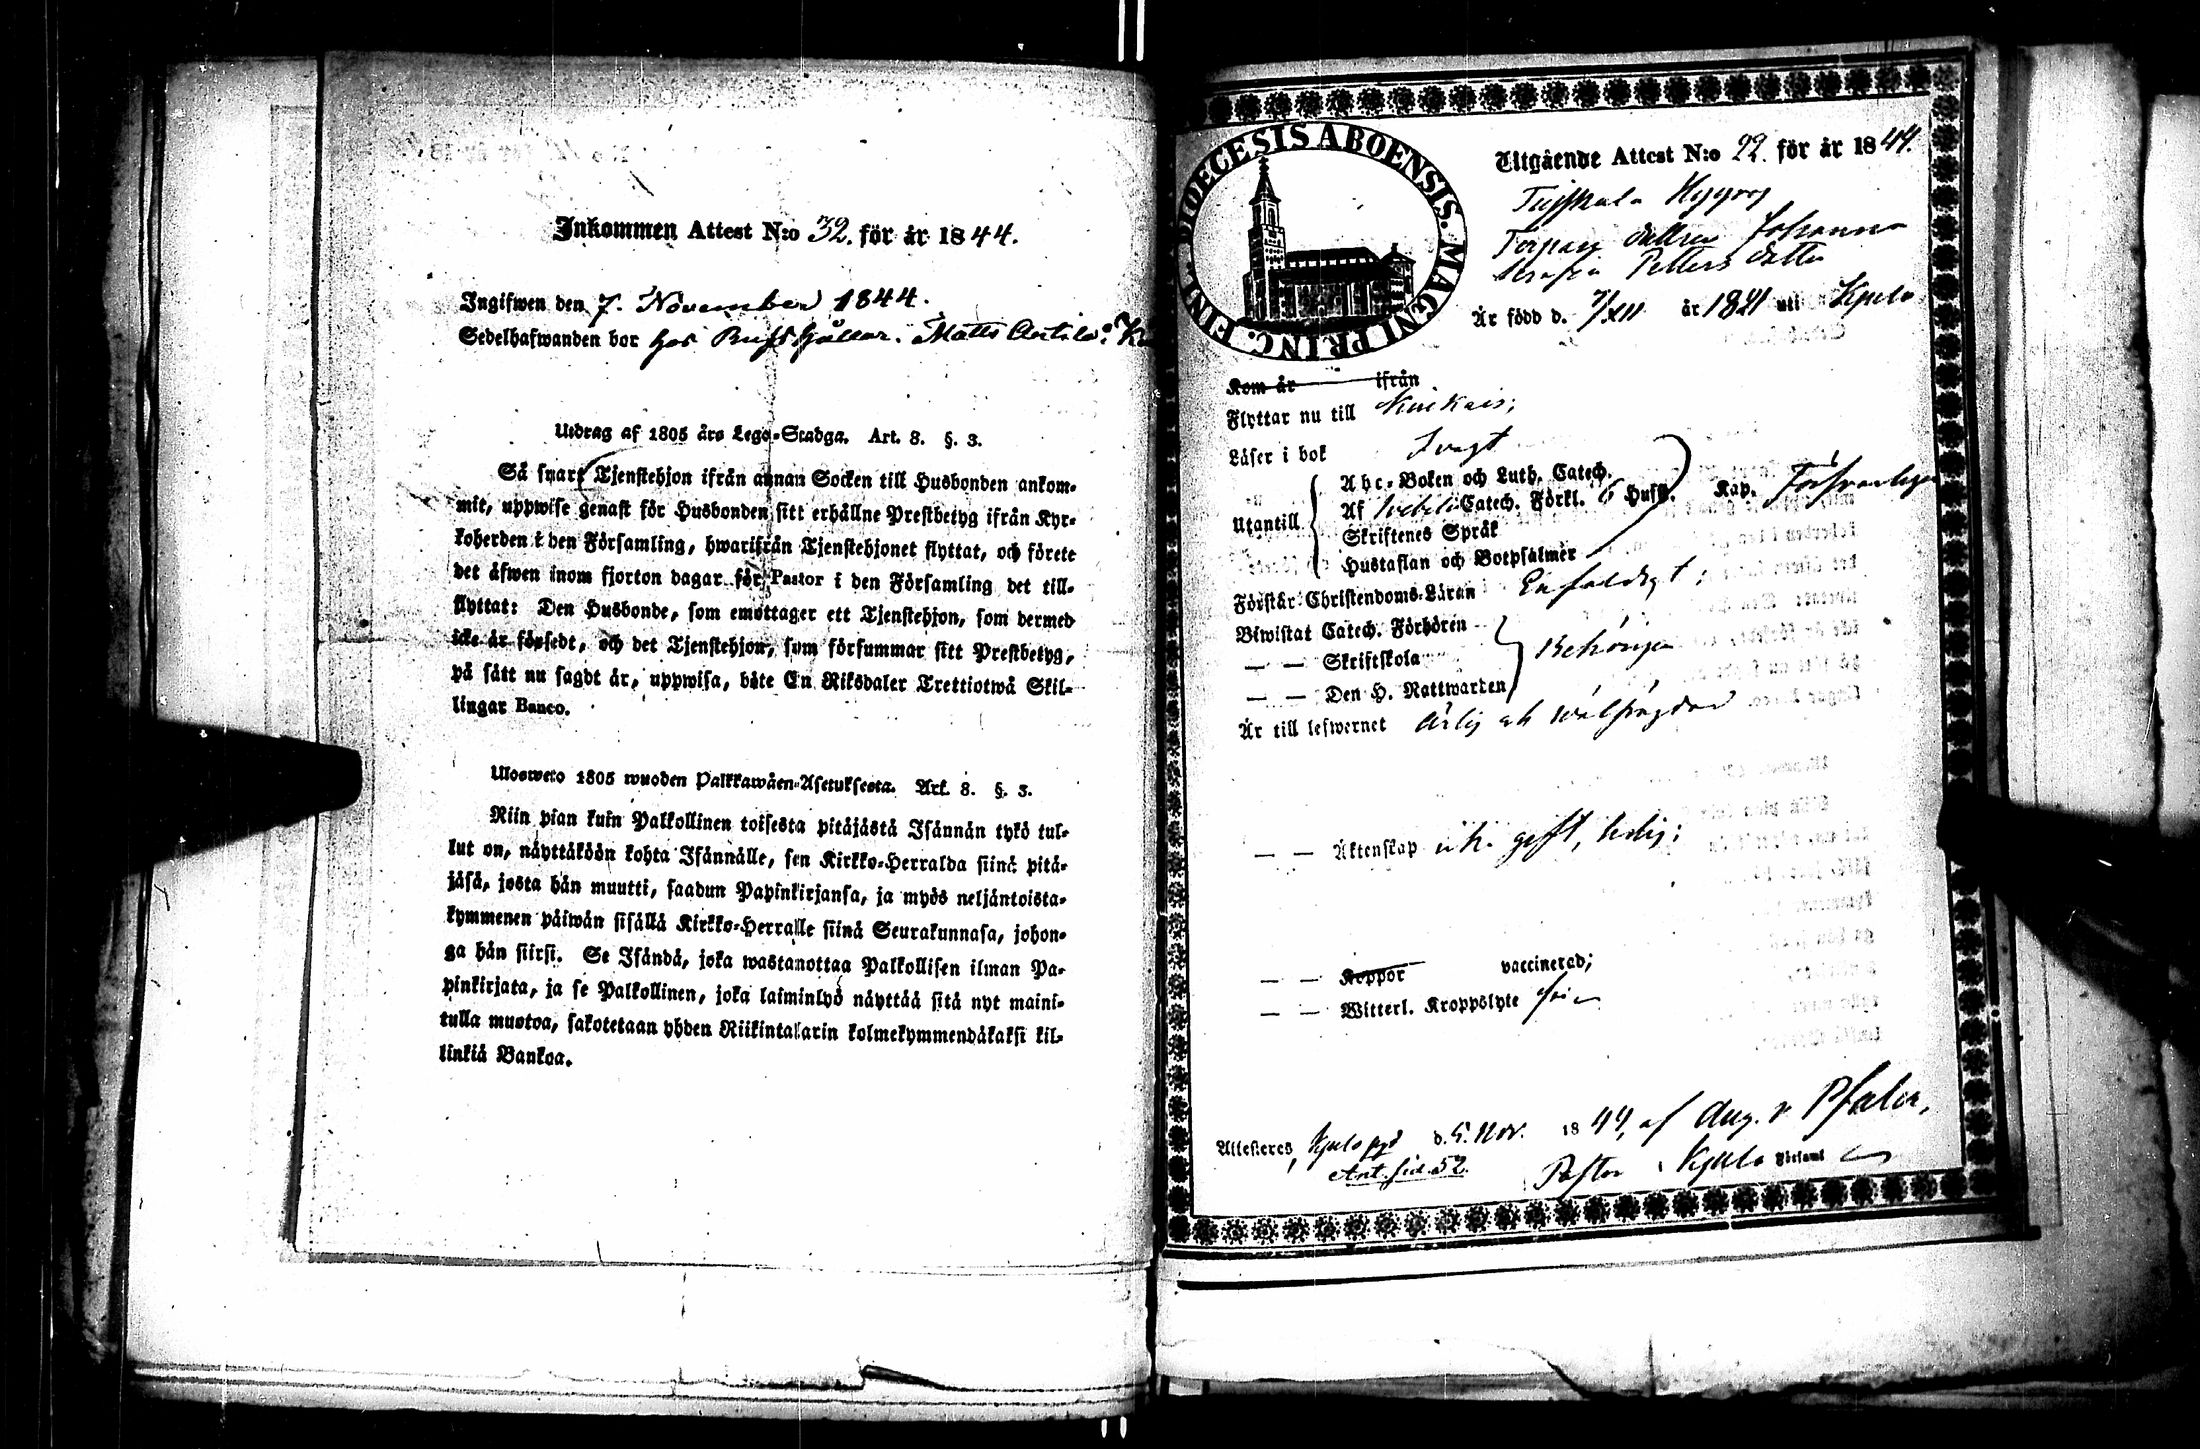 Inkommen Attest N:o 32. för år 1844.
Ingifwen den 7. November 1844.
Sedelhafwanden bor hos Rusthållar. Matts Antila i
Utdrag af 1805 års Lego-Stadga. Art. 8. §. 3.
Så snart Tjenstehjon ifrån annan Socken till Husbonden ankom-
mit, uppwise genast för Husbonden sitt erhållne Prestbetyg ifrån Kyr-
koherden i den Församling, hwarifrån Tjenstehjonet flyttat, och förete
det äfwen inom fjorton dagar för Pastor i den Församling det till-
flyttat: Den Husbonde, som emottager ett Tjenstehjon, som dermed
icke är försedt, och det Tjenstehjon, som försummar sitt Prestbetyg,
på sätt nu sagdt är, uppwisa, böte En Riksdaler Trettiotwå Skil-
lingar Banco.
Uloswето 1805 wuoden Palkkawäen-Asetuksesta. Art. 8. §. 3.
Niin pian kuin Palkollinen toisesta pitäjästä Isännän tykö tul-
lut on, näyttäköön kohta Isännälle, sen Kirkko-Herralda siinä pitä-
jäsä, josta hän muutti, saadun Papinkirjansa, ja myös neljäntoista-
kymmenen päiwän sisällä Kirkko-Herralle siinä Seurakunnasa, johon-
ga hän siirsi. Se Isändä, joka wastanottaa Palkollisen ilman Pa-
pinkirjata, ja se Palkollinen, joka laiminlyö näyttää sitä nyt maini-
tulla muotoa, sakotetaan yhden Riikintalarin kolmekymmendäkaksi kil-
linkiä Bankoa.
DIOECESIS ABOENSIS. MAGNI PRINC. FINL.
Utgående Attest N:o 22. för år 1844.
Torpare dottren Johanna
Petters dotter
Är född d. 7/XII år 1821 uti Kjulo
Kom år ifrån
Flyttar nu till
Läser i bok Svagt
Utantill
Abc-Boken och Luth. Catech.
Af Svebelii Catech. Förkl. 6 Hufst. Kap. Försvarligen
Skriftenes Språk
Hustaflan och Botpsalmer
Förstår Christendoms-Läran Enfaldigt;
Biwistat Catech. Förhören
— — Skriftskola Behörigen
— — Den H. Nattwarden
Är till lefwernet ärlig och wälfrägdad
— — Äktenskap ej gift, ledig;
— — Koppor vaccinerad;
— — Witterl. Kroppslyte fri
Attesteres, Kjulo pgd d. 5. Nov. 1844, af Aug. v Pfaler,
Ant. sid. 52. Pastor i Kjulo Församl